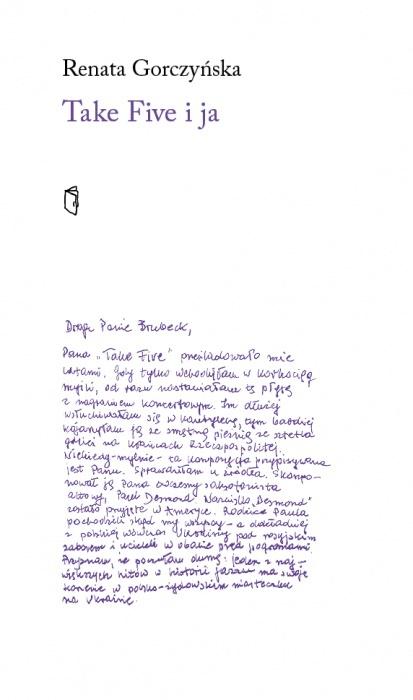 Renata Gorczyńska
Take Five i ja
Drogi Panie Brubeck,
Pana „Take Five” prześladowało mnie
latami. Gdy tylko wchodziłam w
myśli, od razu nastawiałam tę płytę
z nagraniem koncertowym. Im dłużej
wsłuchiwałam się w kantylenę, tym bardziej
kojarzyłam ją ze smętną pieśnią ze sztetla
gdzieś na krańcach Rzeczpospolitej.
Niektórzy mylnie – ta kompozycja przypisywana
jest Panu. Sprawdziłam u źródła. Skompo-
nował ją Pana ówczesny saksofonista
altowy, Paul Desmond. Nazwisko „Desmond”
zostało przyjęte w Ameryce. Rodzice Paula
pochodzili skąd my wszyscy – a dokładniej
z polskiej wówczas Ukrainy pod rosyjskim
zaborem i uciekli w obawie przed pogromami.
Przyznam, że poczułam dumę: jeden z naj-
większych hitów w historii jazzu ma swoje
korzenie w polsko-żydowskim miasteczku
na Ukrainie.